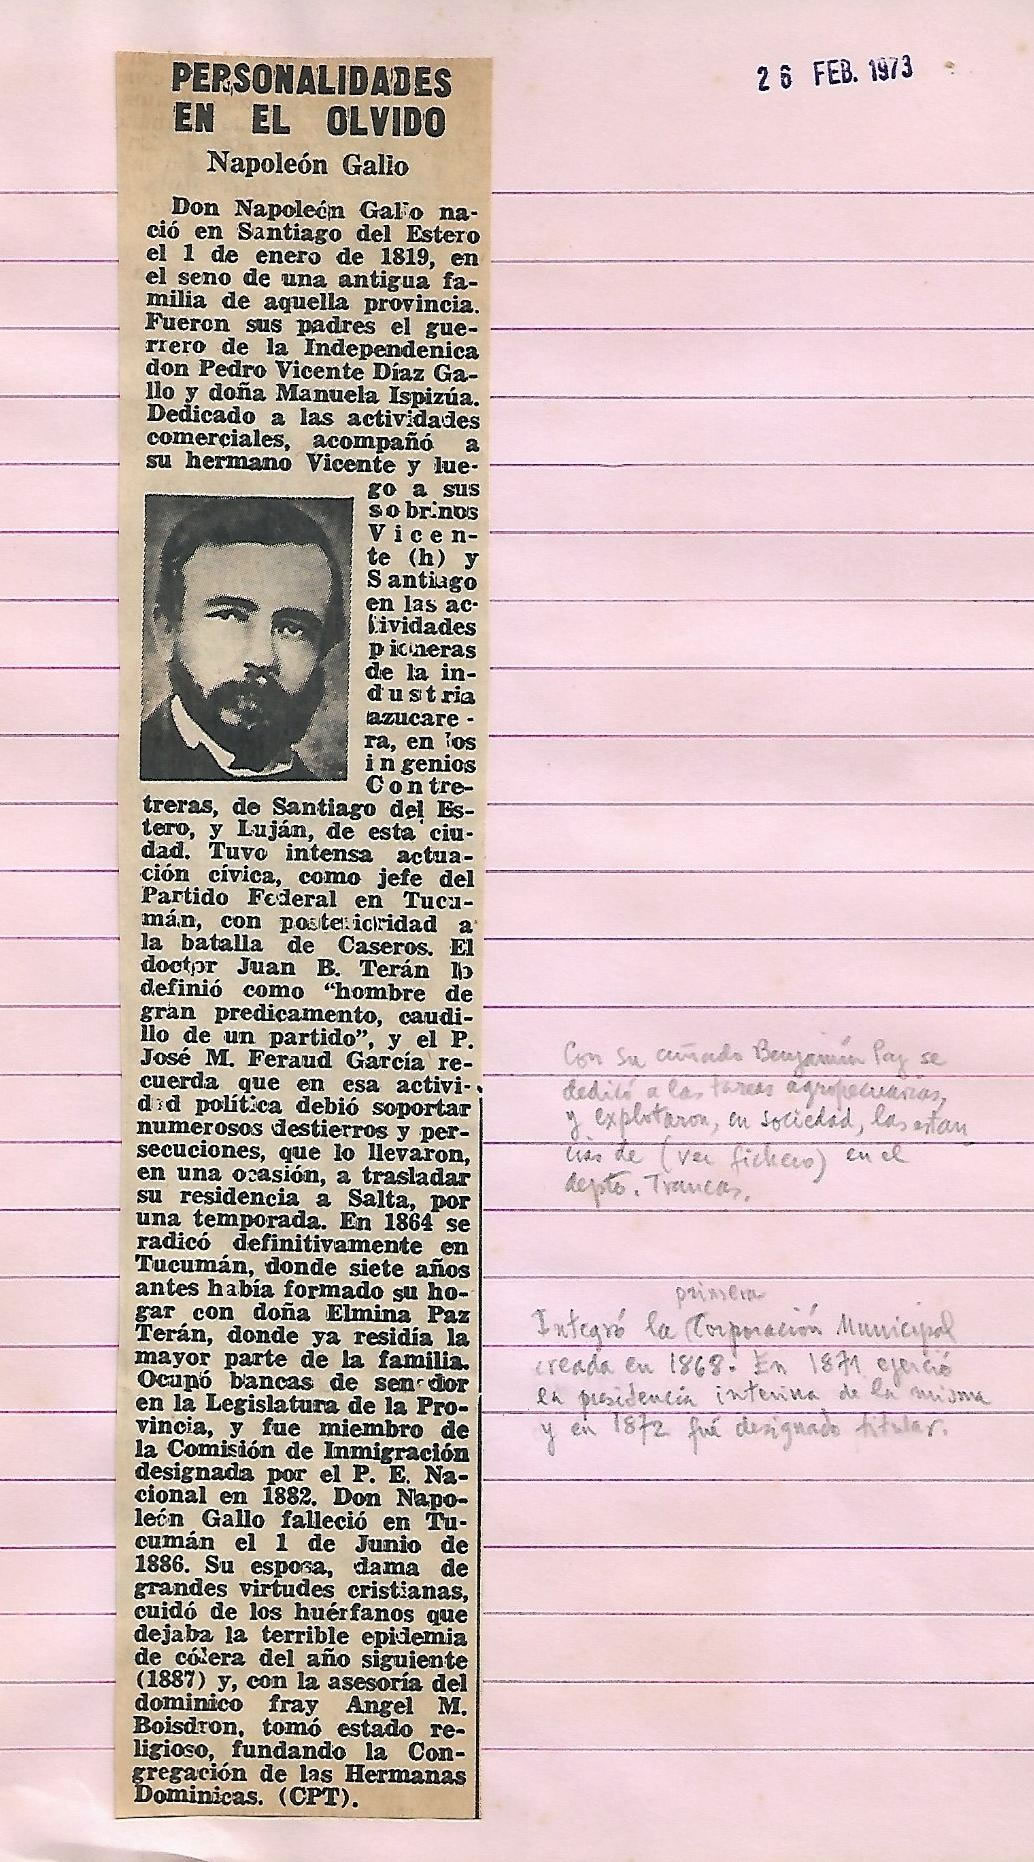 26 FEB. 1973
PERSONALIDADES
EN EL OLVIDO
Napoleón Gallo
Don Napoleón Gallo na-
ció en Santiago del Estero
el 1 de enero de 1819, en
el seno de una antigua fa-
milia de aquella provincia.
Fueron sus padres el gue-
rrero de la Independenica
don Pedro Vicente Díaz Ga-
llo y doña Manuela Ispizúa.
Dedicado a las actividades
comerciales, acompañó a
su hermano Vicente y lue-
go a sus
sobrinos
Vicen-
te (h) y
Santiago
en las ac-
tividades
pioneras
de la in-
dustria
azucare-
ra, en los
ingenios
Contre-
treras, de Santiago del Es-
tero, y Luján, de esta ciu-
dad. Tuvo intensa actua-
ción cívica, como jefe del
Partido Federal en Tucu-
mán, con posterioridad a
la batalla de Caseros. El
doctor Juan B. Terán lo
definió como "hombre de
gran predicamento, caudi-
llo de un partido", y el P.
José M. Feraud García re-
cuerda que en esa activi-
dad política debió soportar
numerosos destierros y per-
secuciones, que lo llevaron,
en una ocasión, a trasladar
su residencia a Salta, por
una temporada. En 1864 se
radicó definitivamente en
Tucumán, donde siete años
antes había formado su ho-
gar con doña Elmina Paz
Terán, donde ya residía la
mayor parte de la familia.
Ocupó bancas de senador
en la Legislatura de la Pro-
vincia, y fue miembro de
la Comisión de Inmigración
designada por el P. E. Na-
cional en 1882. Don Napo-
león Gallo falleció en Tu-
cumán el 1 de Junio de
1886. Su esposa, dama de
grandes virtudes cristianas,
cuidó de los huérfanos que
dejaba la terrible epidemia
de cólera del año siguiente
(1887) y, con la asesoría del
dominico fray Angel M.
Boisdron, tomó estado re-
ligioso, fundando la Con-
gregación de las Hermanas
Dominicas. (CPT).
Con su cuñado Benjamín Paz se
dedicó a las tareas agropecuarias,
y explotaron, en sociedad, las estan
cias de (ver fichero) en el
depto. Trancas.
primera
Integró la Corporación Municipal
creada en 1868. En 1871 ejerció
la presidencia interina de la misma
y en 1872 fué designado titular.